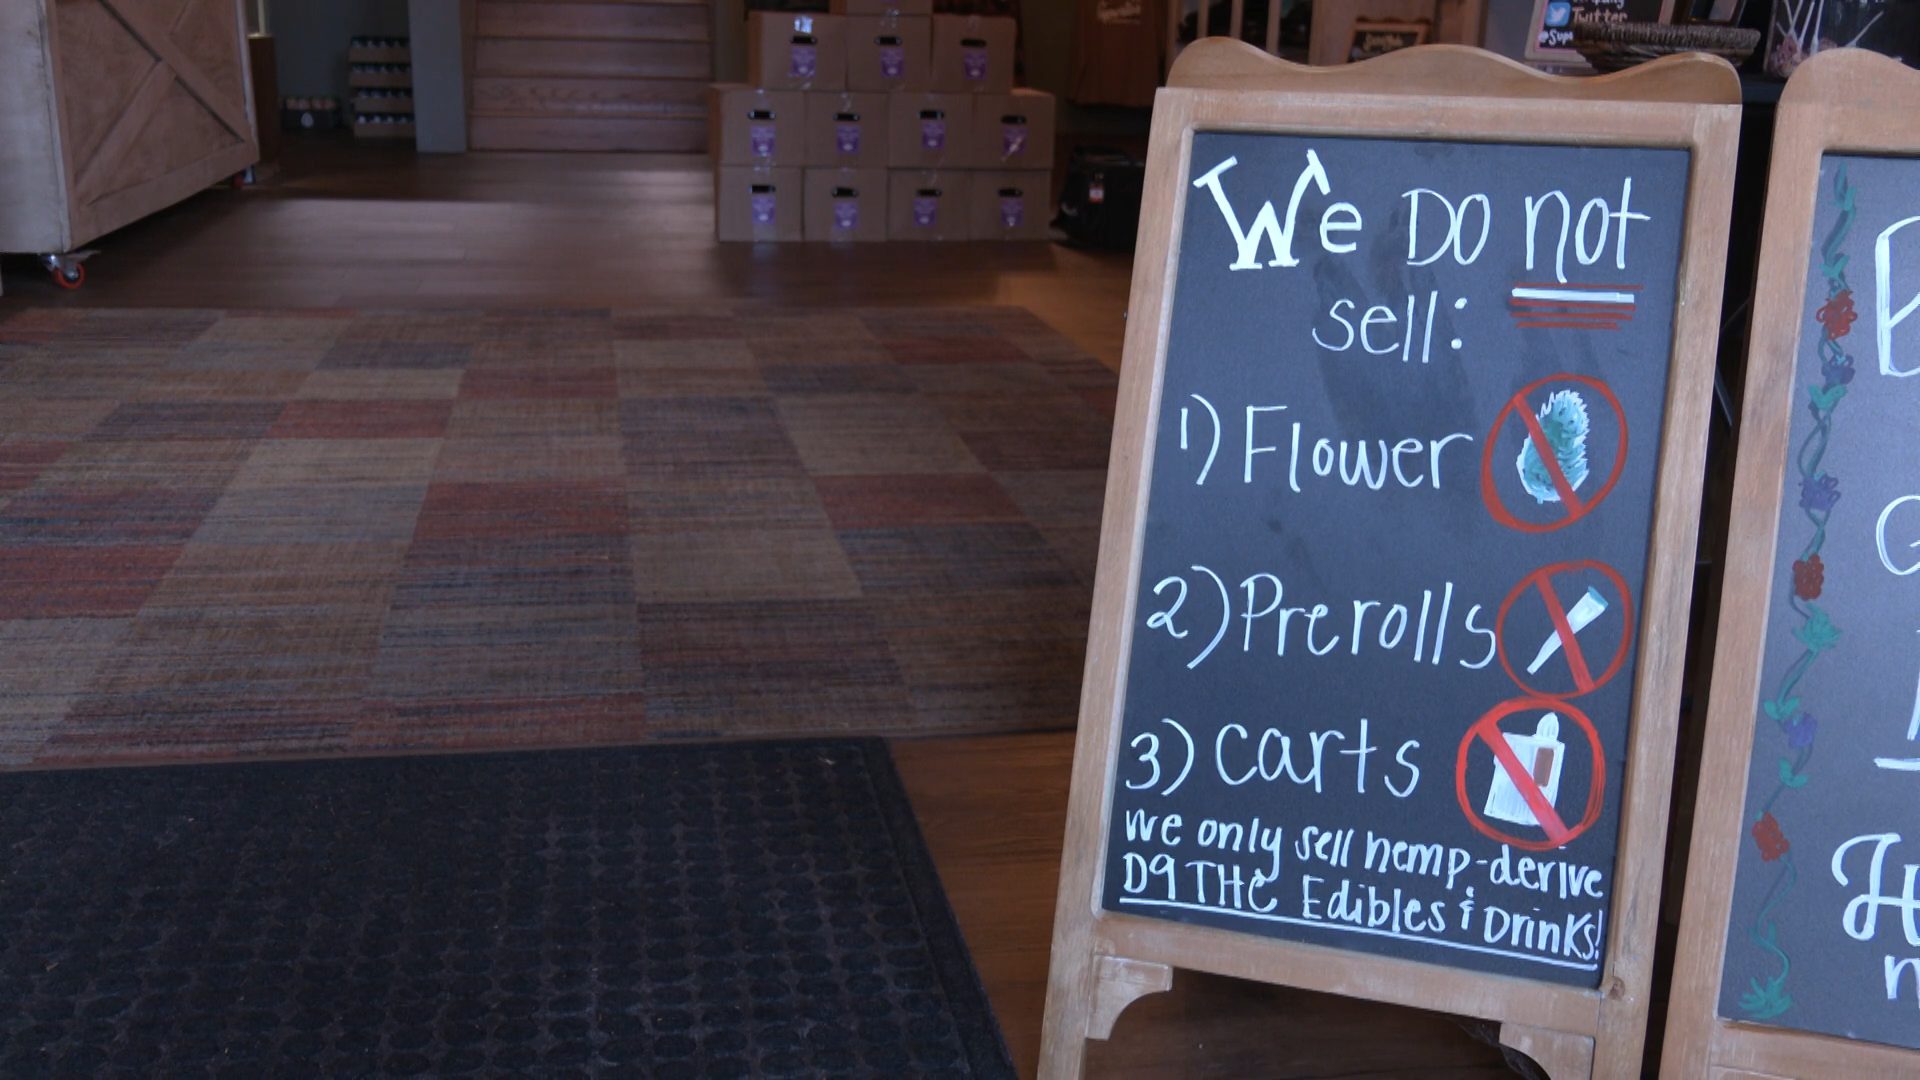 We DO not
sell:
1) Flower
2) Prerolls
3) carts
we only sell hemp-derive
D9 THC Edibles & Drinks!
Twitter